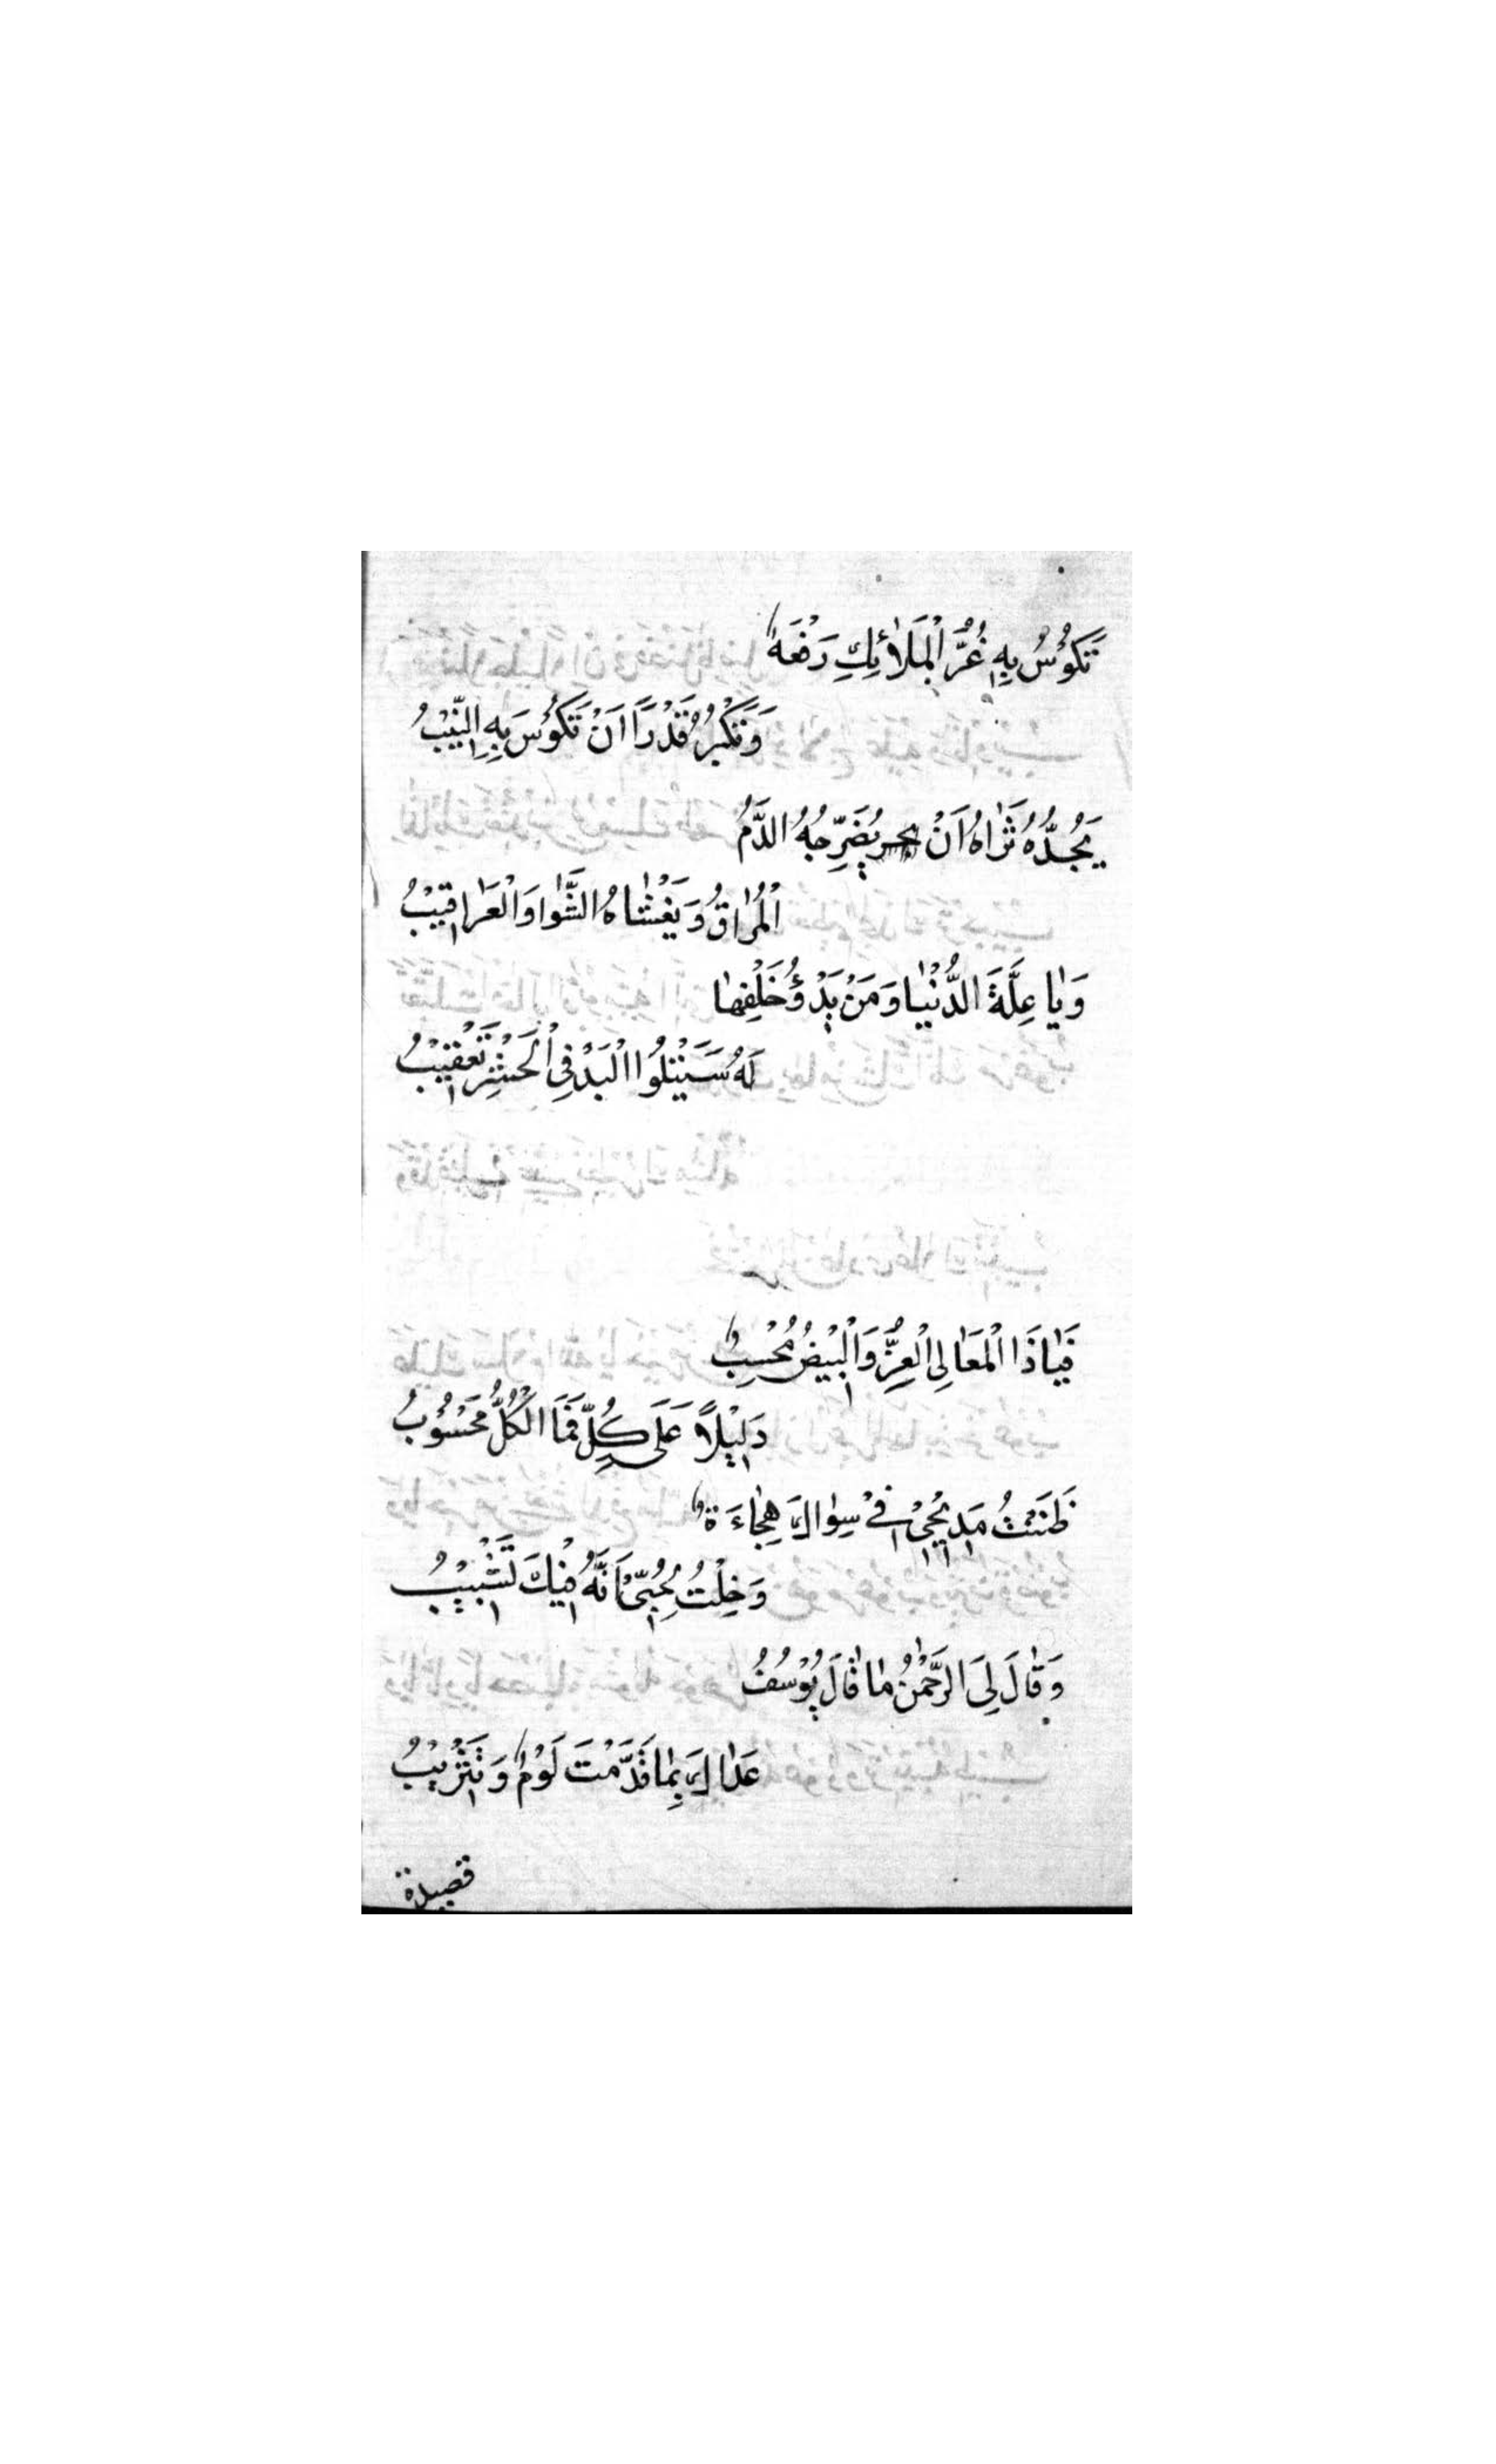 تَكَوُّسُ بِهِ غُرُّ الْمَلَائِكِ رِفْعَةً
وَتَكْبُرُ قَدْرًا اَنْ تَكَوُّسَ بِهِ النِّيْبُ
يُجِدُّهُ ثَرَاهُ اَنْ يُضَرِّجُهُ الدَّمُ
الْمُرَاقُ وَيَغْشَاهُ الشَّوَا وَالْعَرَاقِيْبُ
وَيَا عِلَّةَ الدُّنْيَا وَمَنْ بَدْؤُ خَلْقِهَا
لَهُ سَيَتْلُوا الْبَدْ فِي الْحَشْرِ تَعْقِيْبُ
فَيَاذَا الْمَعَالِي الْغُرُّ وَالْبِيْضُ مُحْسِبٌ
دَلِيْلًا عَلَى كُلٍّ فَمَا الْكُلُّ مَحْسُوْبُ
ظَنَنْتُ مَدِيْحِيْ فِيْ سِوَاكَ هِجَاءَةً
وَخِلْتُ مُحِبِّيْ اَنَّهُ فِيْكَ تَشْبِيْبُ
وَقَالَ لِيَ الرَّحْمٰنُ مَا قَالَ يُوْسُفُ
عَدَاكَ بِمَا قَدَّمْتَ لَوْمٌ وَتَثْرِيْبُ
قصيدة